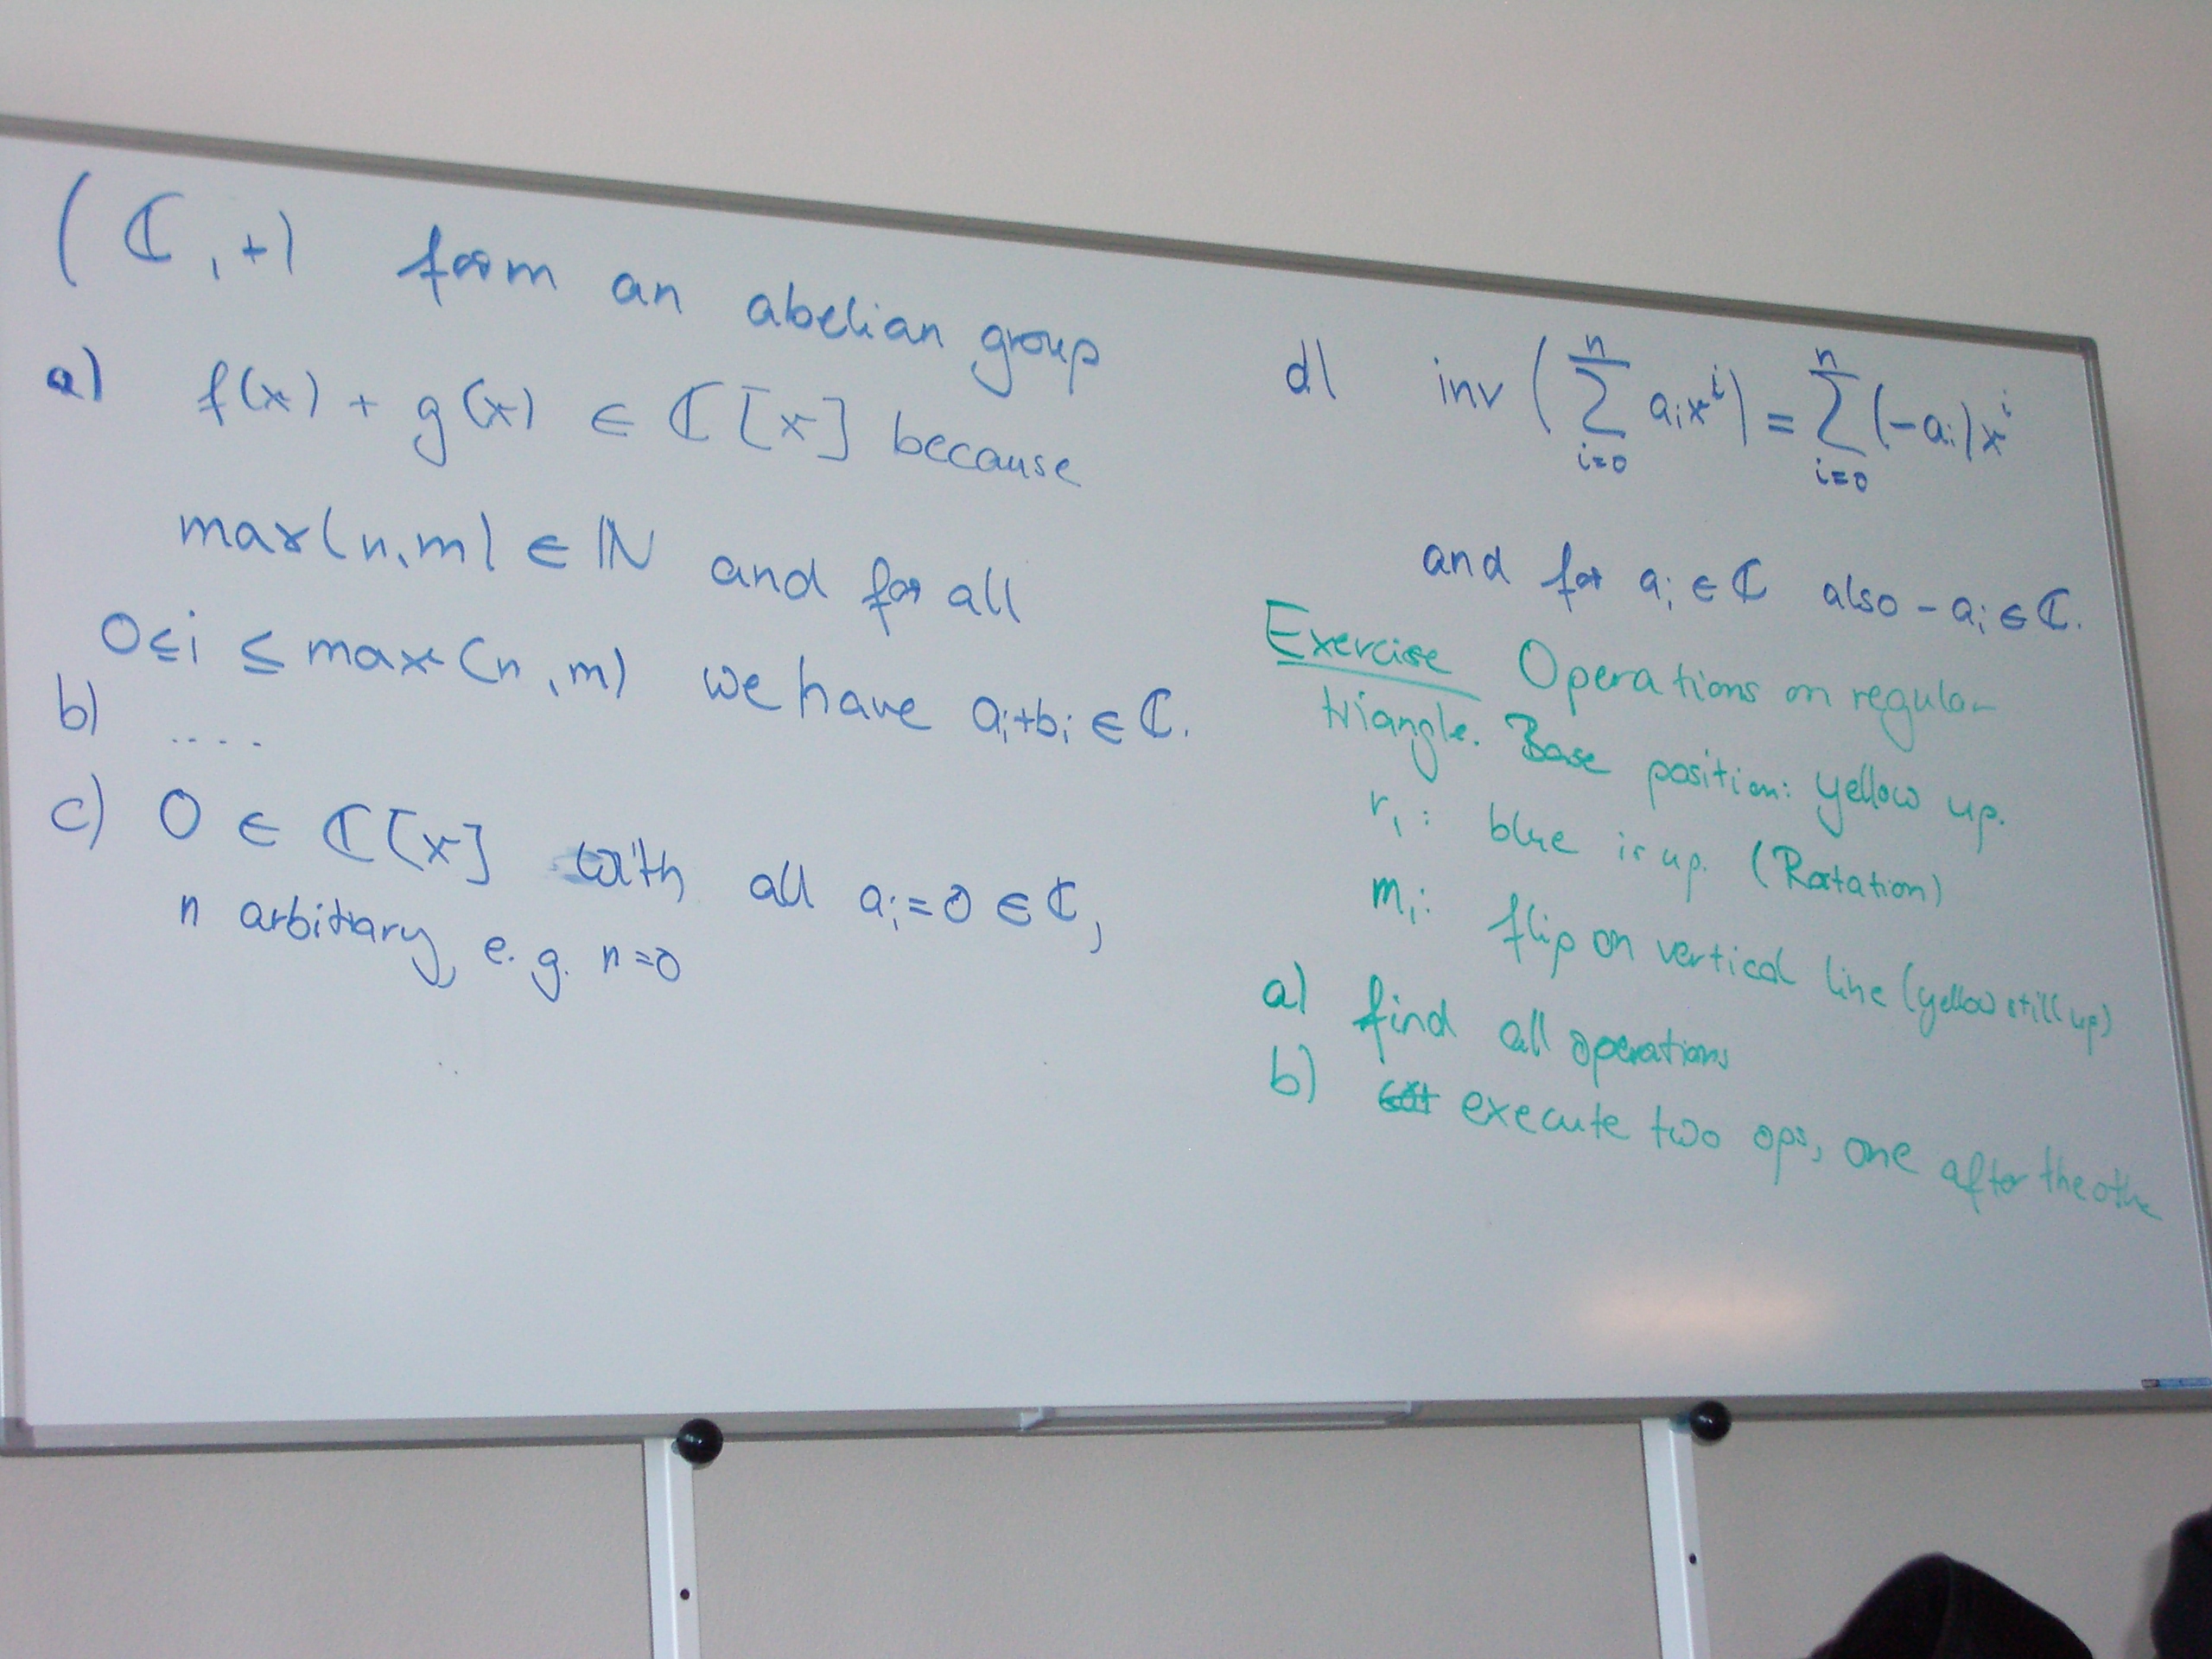 (ℂ, +) form an abelian group
a) f(x) + g(x) ∈ ℂ[x] because
max(n, m) ∈ ℕ and for all
0 ≤ i ≤ max(n, m) we have aᵢ+bᵢ ∈ ℂ.
b) ....
c) 0 ∈ ℂ[x] with all aᵢ = 0 ∈ ℂ,
n arbitrary, e.g. n=0
d) inv (∑ⁿᵢ₌₀ aᵢxⁱ) = ∑ⁿᵢ₌₀ (-aᵢ)xⁱ
and for aᵢ ∈ ℂ also -aᵢ ∈ ℂ.
Exercise Operations on regular
triangle. Base position: yellow up.
r₁: blue is up. (Rotation)
m₁: flip on vertical line (yellow still up)
a) find all operations
b) execute two ops, one after the othe